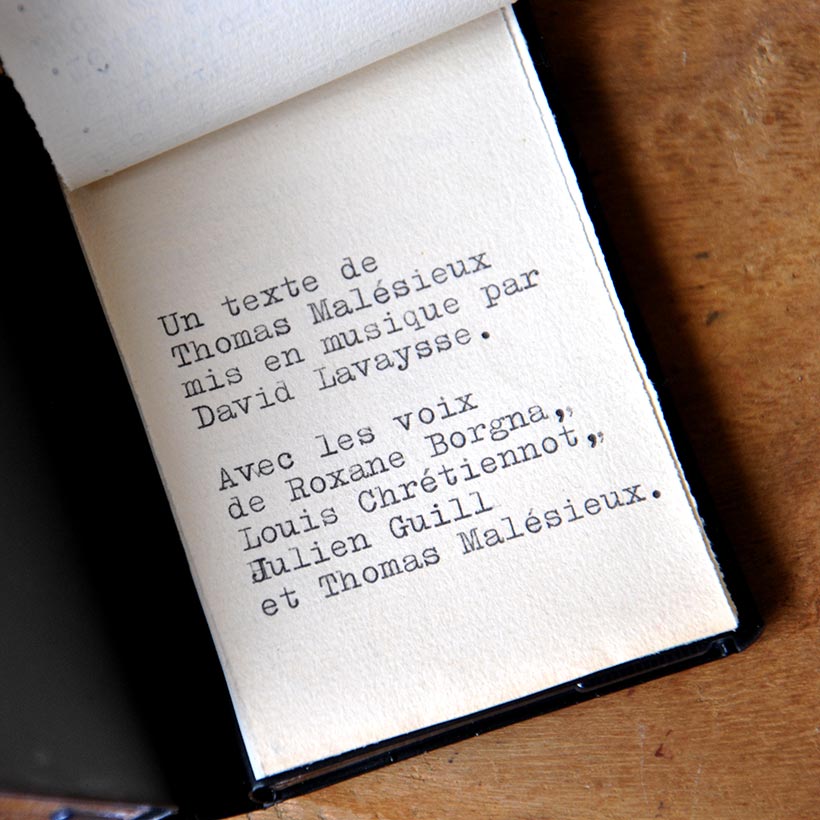 Un texte de
Thomas Malésieux
mis en musique par
David Lavaysse.
Avec les voix
de Roxane Borgna,,
Louis Chrétiennot,,
Julien Guill
et Thomas Malésieux.